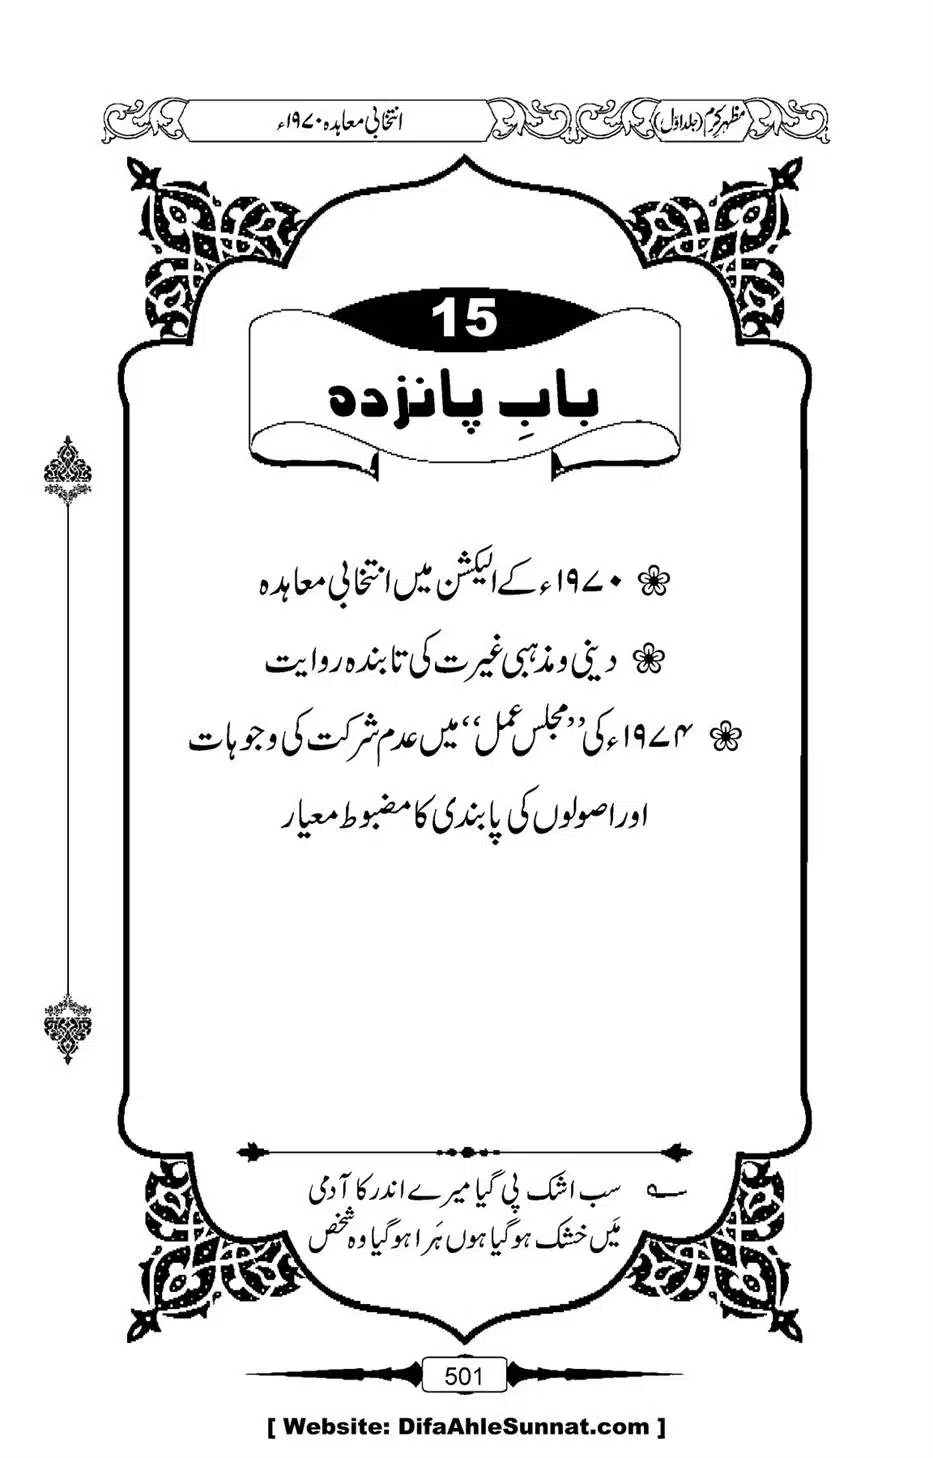 مظہرِ کرم (جلد اوّل)
انتخابی معاہدہ ۱۹۷۰ء
15
بابِ پانزدہ
۱۹۷۰ء کے الیکشن میں انتخابی معاہدہ
دینی و مذہبی غیرت کی تابندہ روایت
۱۹۷۴ء کی ’’مجلس عمل‘‘ میں عدم شرکت کی وجوہات
اور اصولوں کی پابندی کا مضبوط معیار
؎ سب اشک پی گیا میرے اندر کا آدمی
مَیں خشک ہو گیا ہوں ہَرا ہو گیا وہ شخص
501
[ Website: DifaAhleSunnat.com ]